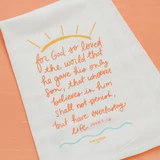 for God so loved
the world that
he gave his only
Son, that whoever
believes in him
shall not perish,
but have everlasting
life.